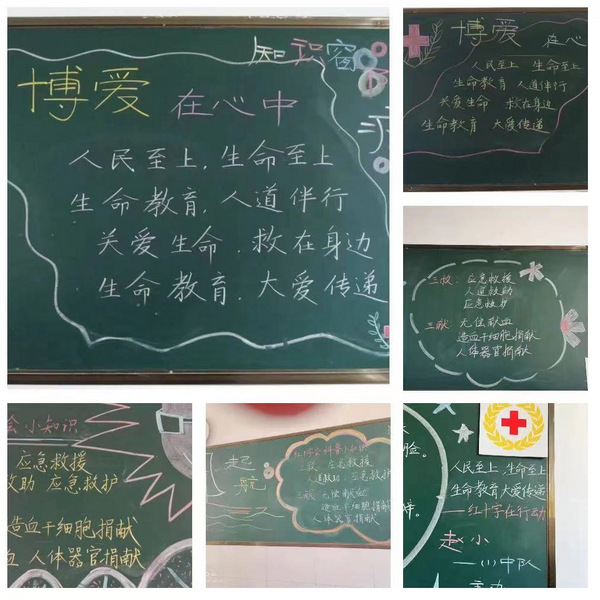 知识窗
博爱 在心中
人民至上，生命至上
生命教育，人道伴行
关爱生命 救在身边
生命教育，大爱传递
博爱 在心
人民至上 生命至上
生命教育 人道伴行
关爱生命 救在身边
生命教育 大爱传递
三救：应急救援
人道救助
应急救护
三献：无偿献血
造血干细胞捐献
人体器官捐献
会小知识
应急救援
救助 应急救护
造血干细胞捐献
血 人体器官捐献
起航
三救 应急救援
人道救助 应急救护
三献 无偿献血
造血干细胞捐献
人体器官捐献
脸。
人民至上，生命至上
生命教育大爱传递
——红十字在行动
赵小
一(1)中队